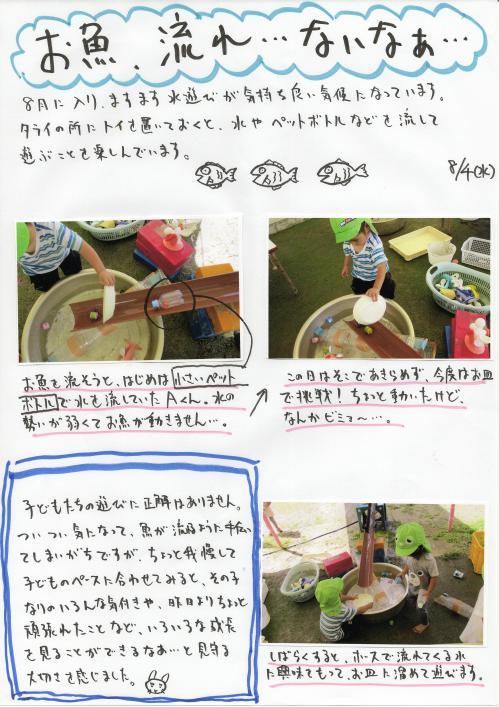 お魚、流れ…ないなぁ…
8月に入り、ますます水遊びが気持ち良い気候になっています。
タライの所にトイを置いておくと、水やペットボトルなどを流して
遊ぶことを楽しんでいます。
8/4(水)
お魚を流そうと、はじめは小さいペット
ボトルで水を流していたAくん。水の
勢いが弱くてお魚が動きません…。
この日はそこであきらめず、今度はお皿
で挑戦！ちょっと動いたけど、
なんかビミョ〜…。
子どもたちの遊びに正解はありません。
ついつい気になって、魚が流れるように手伝い
てしまいがちですが、ちょっと我慢して
子どものペースに合わせてみると、その子
なりのいろんな気付きや、昨日よりちょっと
頑張れたことなど、いろいろな成長
を見ることができるなあ…と見守る
大切さを感じました。
しばらくすると、ホースで流れてくる水
に興味をもって、お皿に溜めて遊びます。